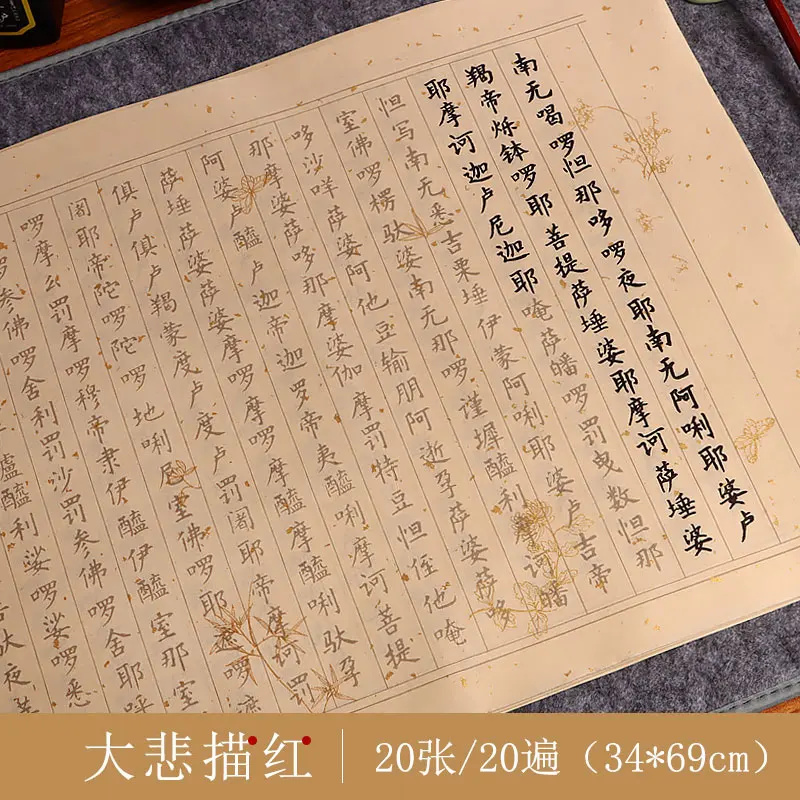 南无喝啰怛那哆啰夜耶南无阿唎耶婆卢
羯帝烁钵啰耶菩提萨埵婆耶摩诃萨埵婆
耶摩诃迦卢尼迦耶唵萨皤啰罚曳数怛那
怛写南无悉吉栗埵伊蒙阿唎耶婆卢吉帝
室佛啰楞驮婆南无那啰谨墀醯利摩诃皤
哆沙咩萨婆阿他豆输朋阿逝孕萨婆萨哆
那摩婆萨哆那摩婆伽摩罚特豆怛侄他唵
阿婆卢醯卢迦帝迦罗帝夷醯唎摩诃菩提
萨埵萨婆萨婆摩啰摩啰摩醯摩醯唎驮孕
俱卢俱卢羯蒙度卢度卢罚阇耶帝摩诃罚
阇耶帝陀啰陀啰地唎尼室佛啰耶遮啰遮
啰摩么罚摩啰穆帝隶伊醯伊醯室那室
参佛啰舍利罚沙罚参佛啰舍耶呼
嚧醯利娑啰娑啰悉
驮夜菩
大悲描红
20张/20遍（34*69cm）